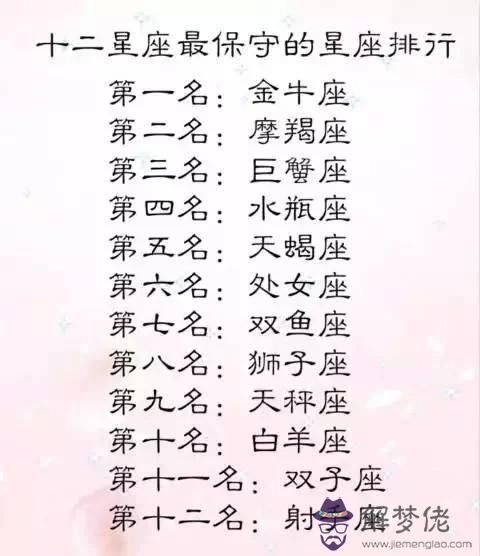 十二星座最保守的星座排行
第一名：金牛座
第二名：摩羯座
第三名：巨蟹座
第四名：水瓶座
第五名：天蝎座
第六名：处女座
第七名：双鱼座
第八名：狮子座
第九名：天秤座
第十名：白羊座
第十一名：双子座
第十二名：射手座
解梦佬
www.jiemenglao.com